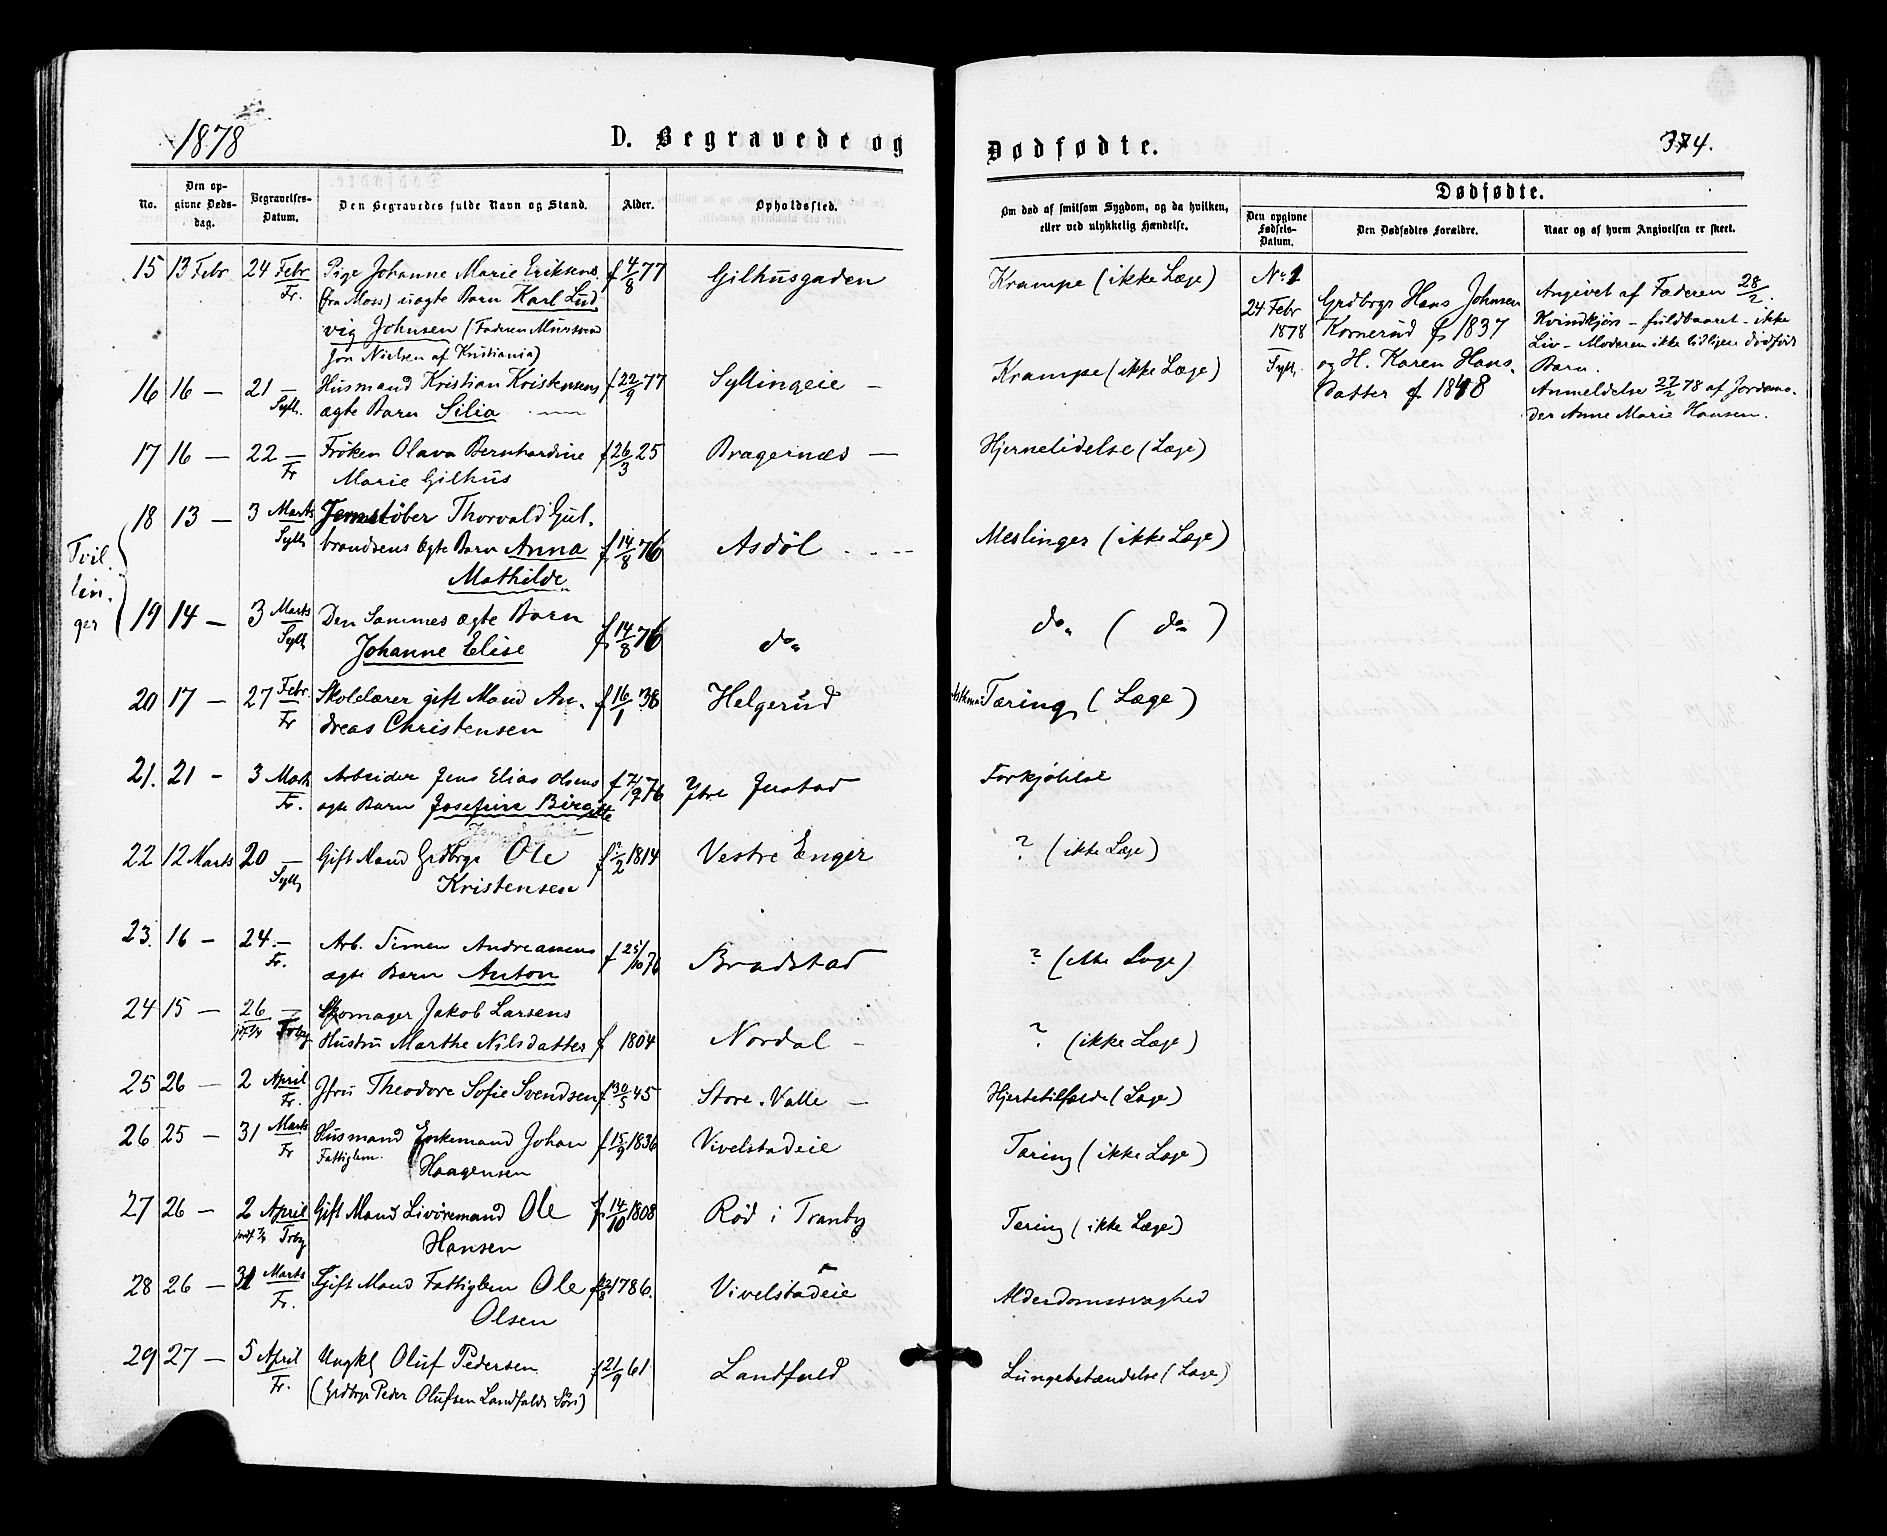 1878
D. Begravede og
Dødfødte.
374.
No.
Den opgivne Dødsdag.
Begravelses-Datum.
Den Begravedes fulde Navn og Stand.
Alder.
Opholdssted.
Om død af smitsom Sygdom, og da hvilken, eller ved ulykkelig Hændelse.
Dødfødte.
Den opgivne Fødsels-Datum.
Den Dødfødtes Forældre.
Naar og af hvem Angivelsen er skeet.
15 13 Febr 24 Febr Pige Johanne Marie Eriksens f 4/8 77 Gilhusgaden Krampe (ikke Læge)
Fr. (fra Moss) uægte Barn Karl Lud
vig Johnsen (Faderen Murssvend
Jon Nielsen af Kristiania)
16 16 — 21 — Husmand Kristian Kristensens f 22/9 77 Syllingeie — Krampe (ikke Læge)
Syll. ægte Barn Silia
17 16 — 22 — Frøken Olava Bernhardine f 26/3 25 Bragernæs — Hjernelidelse (Læge)
Fr Marie Gilhus
Tvil
lin
ger
18 13 — 3 Marts Jernstøber Thorvald Gul-
Syll brandsens ægte Barn Anna f 14/8 76 Asdøl Meslinger (ikke Læge)
Mathilde
19 14 — 3 Marts Den Sammes ægte Barn
Syll Johanne Elise f 14/8 76 do do ( do )
20 17 — 27 Febr. Skolelærer gift Mand An- f 16/1 38 Helgerud Astkma Tæring (Læge)
Fr dreas Christensen
21. 21 - 3 Marts Arbeider Jens Elias Olsens f 7/9 76 Ytre Justad Forkjølelse
Fr. ægte Barn Josefine Birgitte
22 12 Marts 20 — Gift Mand Grdbrgr Ole f /2 1814 Vestre Enger ? (ikke Læge)
Syll Kristensen
23. 16 - 24 — Arb. Simen Andreassens f 25/10 76 Bradstad ? (ikke Læge)
Fr. ægte Barn Anton
24 15 — 26 — Skomager Jakob Larsens
Trby Hustru Marthe Nilsdatter f 1804 Nordal — ? (ikke Læge)
25 26 — 2 April Jfru Theodore Sofie Svendsen f 30/5 45 Store Valle — Hjertetilfælde (Læge)
Fr.
26 25 — 31 Marts Husmand Enkemand Johan f 15/9 1836 Vivelstadeie Tæring (ikke Læge)
Fr Fattiglem. Haagensen
27 26 — 2 April Gift Mand Livøremand Ole f 14/10 1808 Rød i Tranby Tæring (ikke Læge)
Trby Hansen
28 26 — 31 Marts Gift Mand Fattiglem Ole f 1786. Vivelstadeie Alderdomssvaghed
Fr. Olsen
29 27 — 5 April Ungkl Oluf Pedersen f 21/9 61 Landfald Lungebetændelse (Læge)
Fr. (Grdbrgr Peder Olufsen Landfalds Søn)
No 1
24 Febr
1878
Syll.
Grdbrgr Hans Johnsen
Kornerud f 1837
og H. Karen Hans-
datter f 1848
Angivet af Faderen 28/2.
Kvindkjøn - fuldbaaret - ikke
Liv - Moderen ikke tidligere dødfødt
Barn.
Anmeldelse 27/2 78 af Jordemo-
der Anne Marie Hansen.